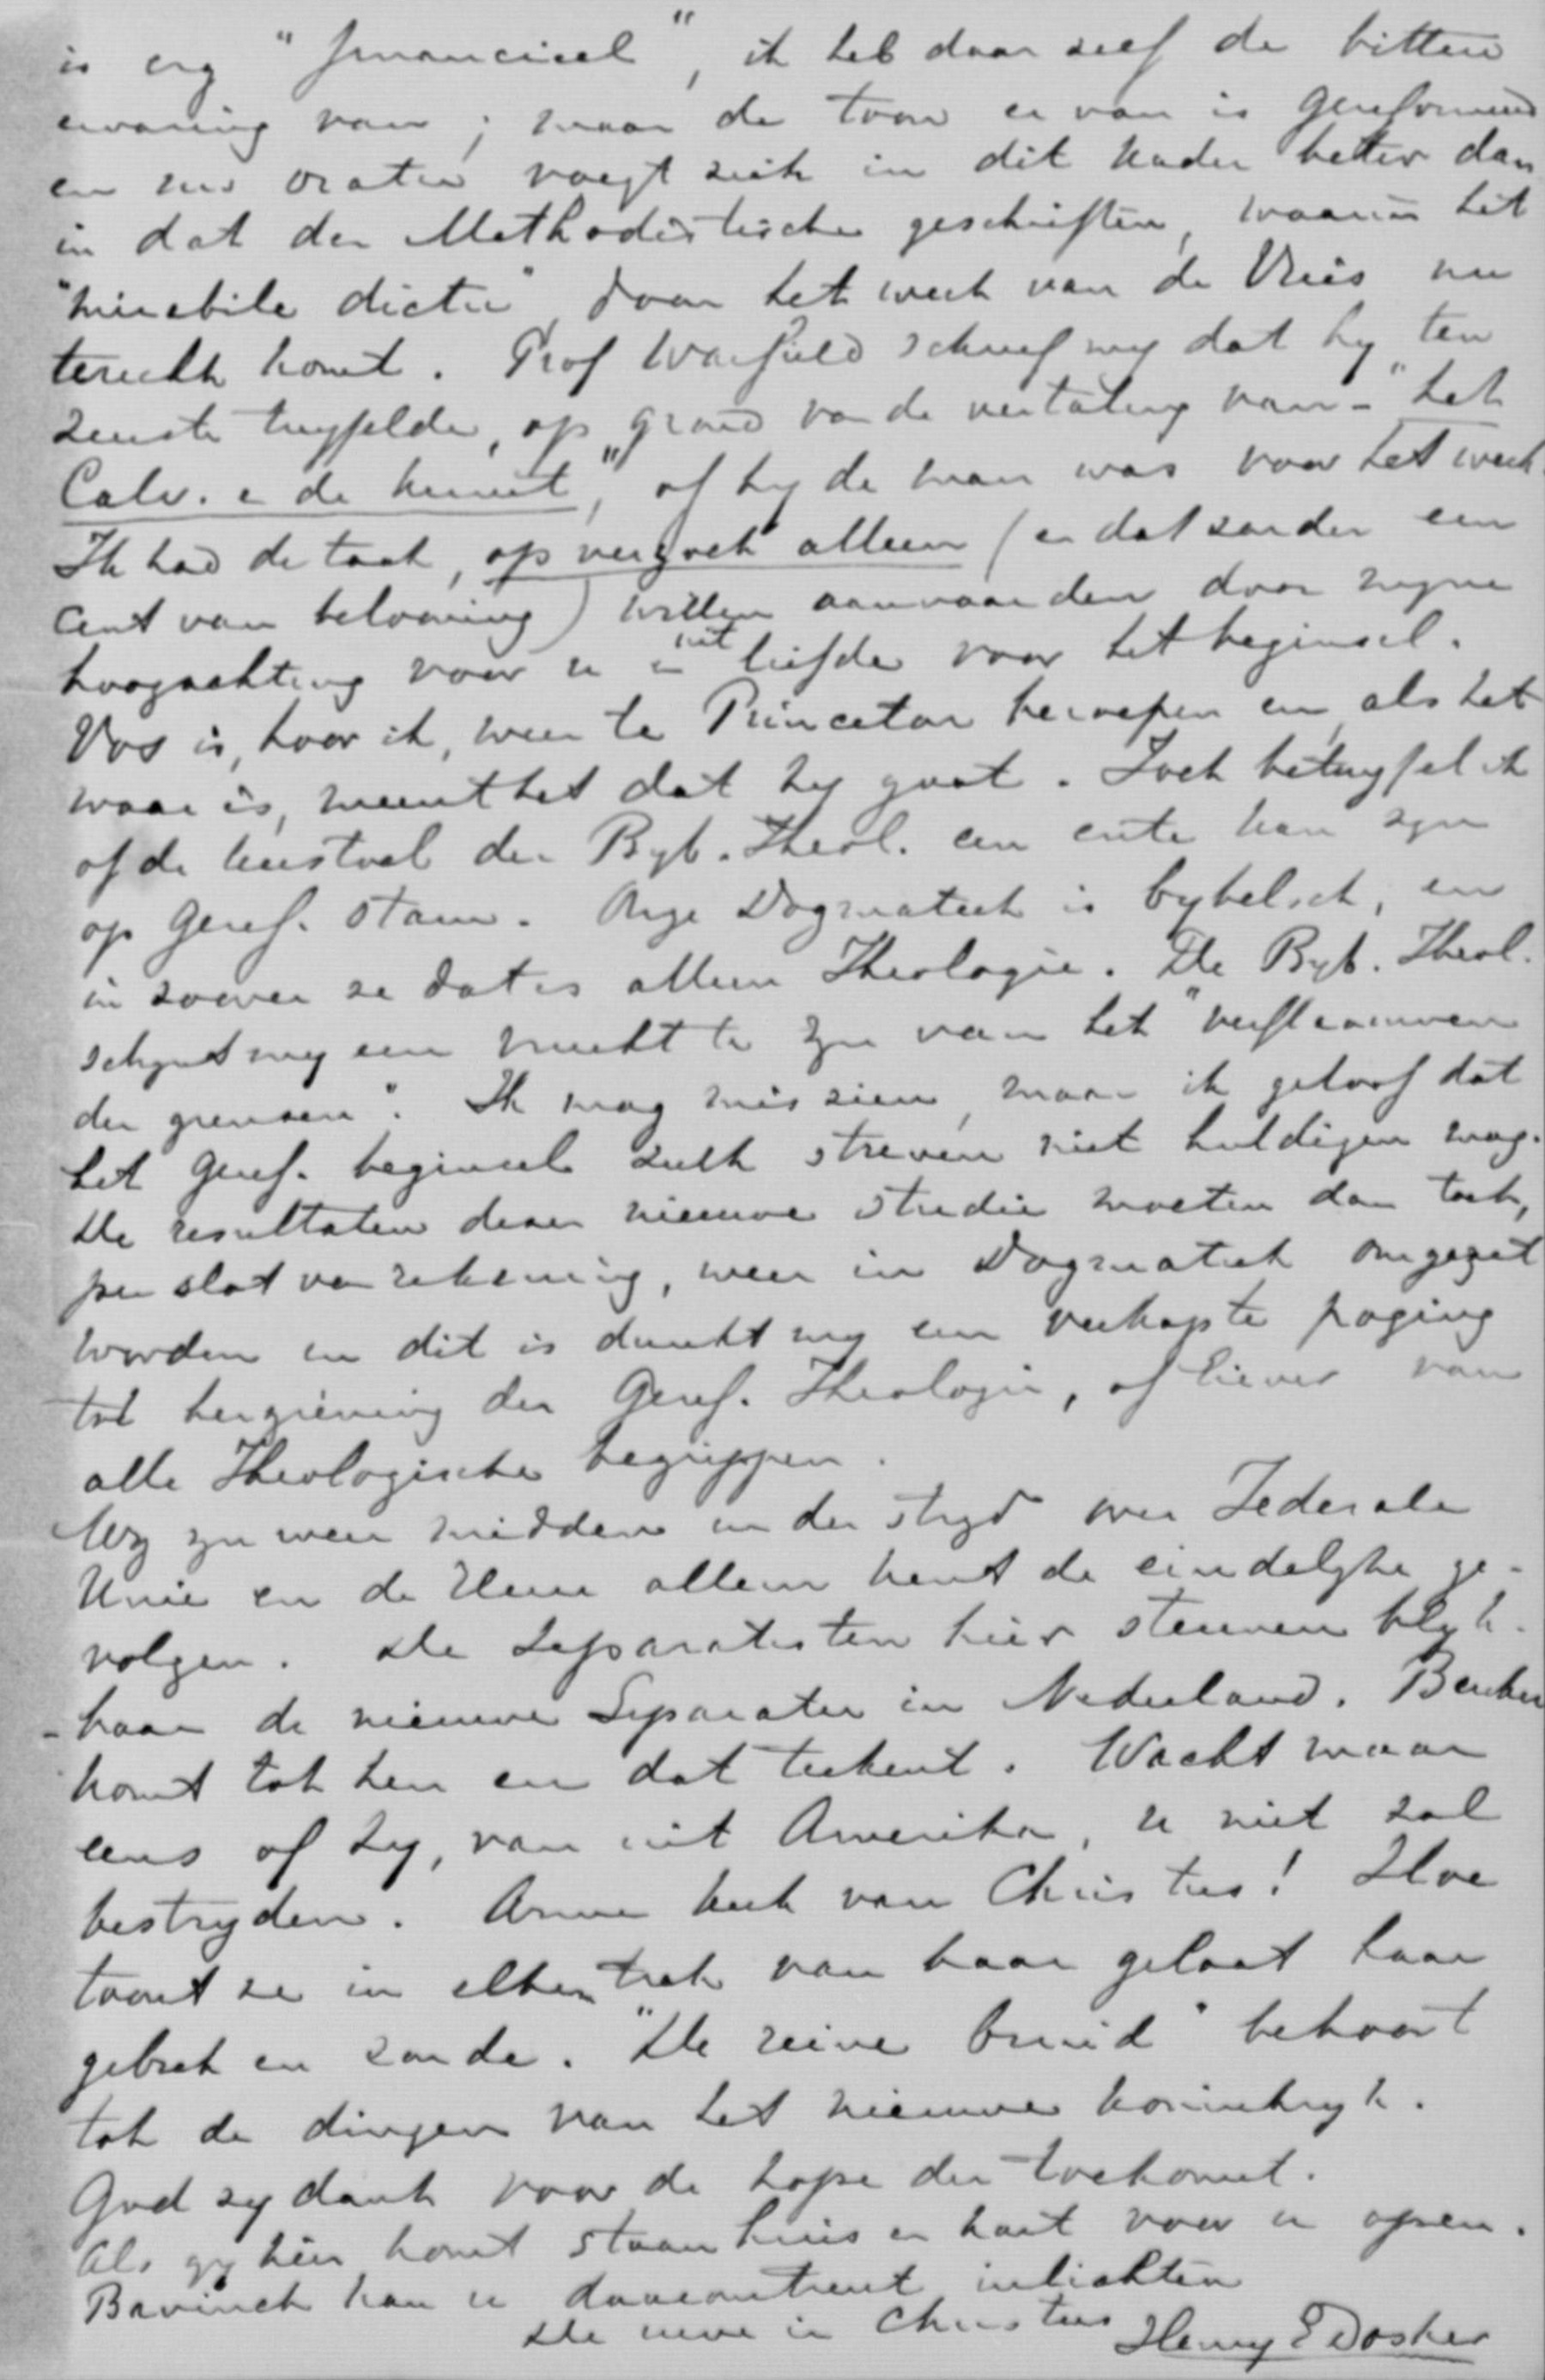 is erg "financieel", ik heb daar zelf de bittere
ervaring van; maar de toon er van is Gereformeerd
en uw oratie voegt zich in dit kader beter dan
in dat der Methodistische geschriften, waarin het
"mirabile dictu" door het werk van de Vries nu
terecht komt. Prof Warfield schreef my dat hy ten
zeerste twyfelde, op grond van de vertaling van - "het
Calv. en de kunst", of hy de man was voor het werk.
Ik had de taak, op verzoek alleen (en dat zonder een
cent van belooning) willen aanvaarden door myne
hoogachting voor u en uit liefde voor het beginsel.
Vos is, hoor ik, weer te Princeton beroepen en, als het
waar is, meent het dat hy gaat. Toch betwyfel ik
of de leerstoel der Byb. Theol. een ente kan zyn
op Geref. stam. Onze Dogmatiek is bybelsch, en
in zoover ze dat is alleen Theologie. De Byb. Theol.
schynt my een vrucht te zyn van het "verflaauwen
der grenzen". Ik mag mis zien, maar ik geloof dat
het Geref. beginsel zulk streven niet huldigen mag.
De resultaten dezer nieuwe studie moeten dan toch,
per slot van rekening, weer in Dogmatiek omgezet
worden en dit is dunkt my een verkapte poging
tot herziening der Geref. Theologie, of liever van
alle Theologische begrippen.
Wy zyn weer midden in den stryd over Federale
Unie en de Heer alleen kent de eindelyke ge-
volgen. De Separatisten hier steunen blyk-
-baar de nieuwe Separatie in Nederland. Beuker
komt tot hen en dat teekent. Wacht maar
eens of hy, van uit Amerika, u niet zal
bestryden. Arme kerk van Christus! Hoe
toont ze in elken trek van haar gelaat haar
gebrek en zonde. "De reine bruid" behoort
tot de dingen van het nieuwe koninkryk.
God zy dank voor de hope der toekomst.
Als gy hier komt staan huis en hart voor u open.
Bavinck kan u daaromtrent inlichten
De uwe in Christus Henry E Dosker